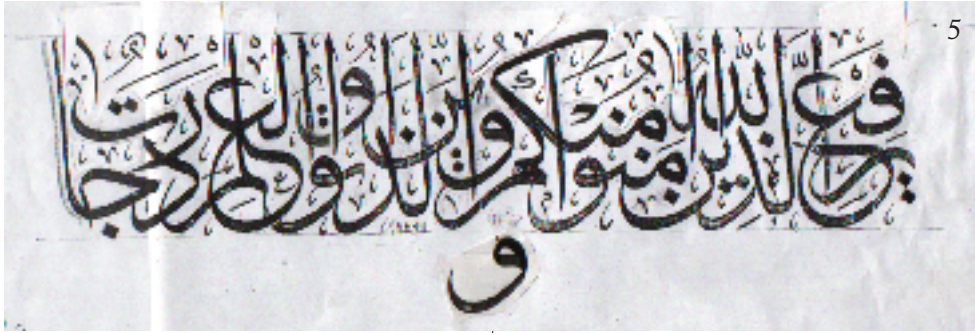 5
يرفع الله الذين امنوا منكم والذين اوتوا العلم درجات
و